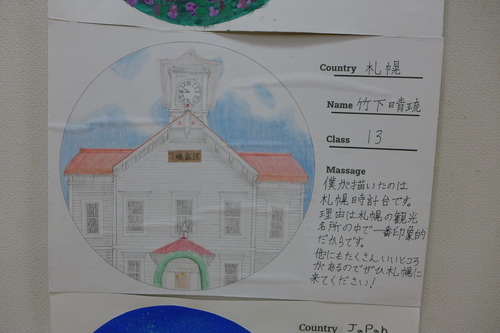 Country 札幌
Name 竹下晴琉
Class 13
Massage
僕が描いたのは
札幌時計台です。
理由は札幌の観光
名所の中で一番印象的
だからです。
他にもたくさんいいところ
があるのでぜひ札幌に
来てください!
Country JaPan